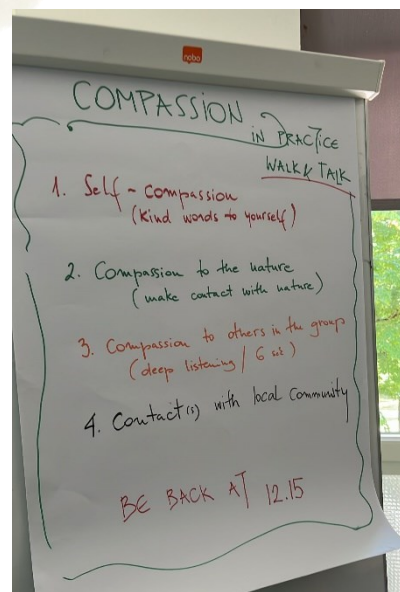 nobo
COMPASSION
IN PRACTICE
WALK & TALK
1. Self-compassion
(Kind words to yourself)
2. Compassion to the nature
(make contact with nature)
3. Compassion to others in the group
(deep listening /
4. Contact(s) with local Community
BE BACK AT 12.15